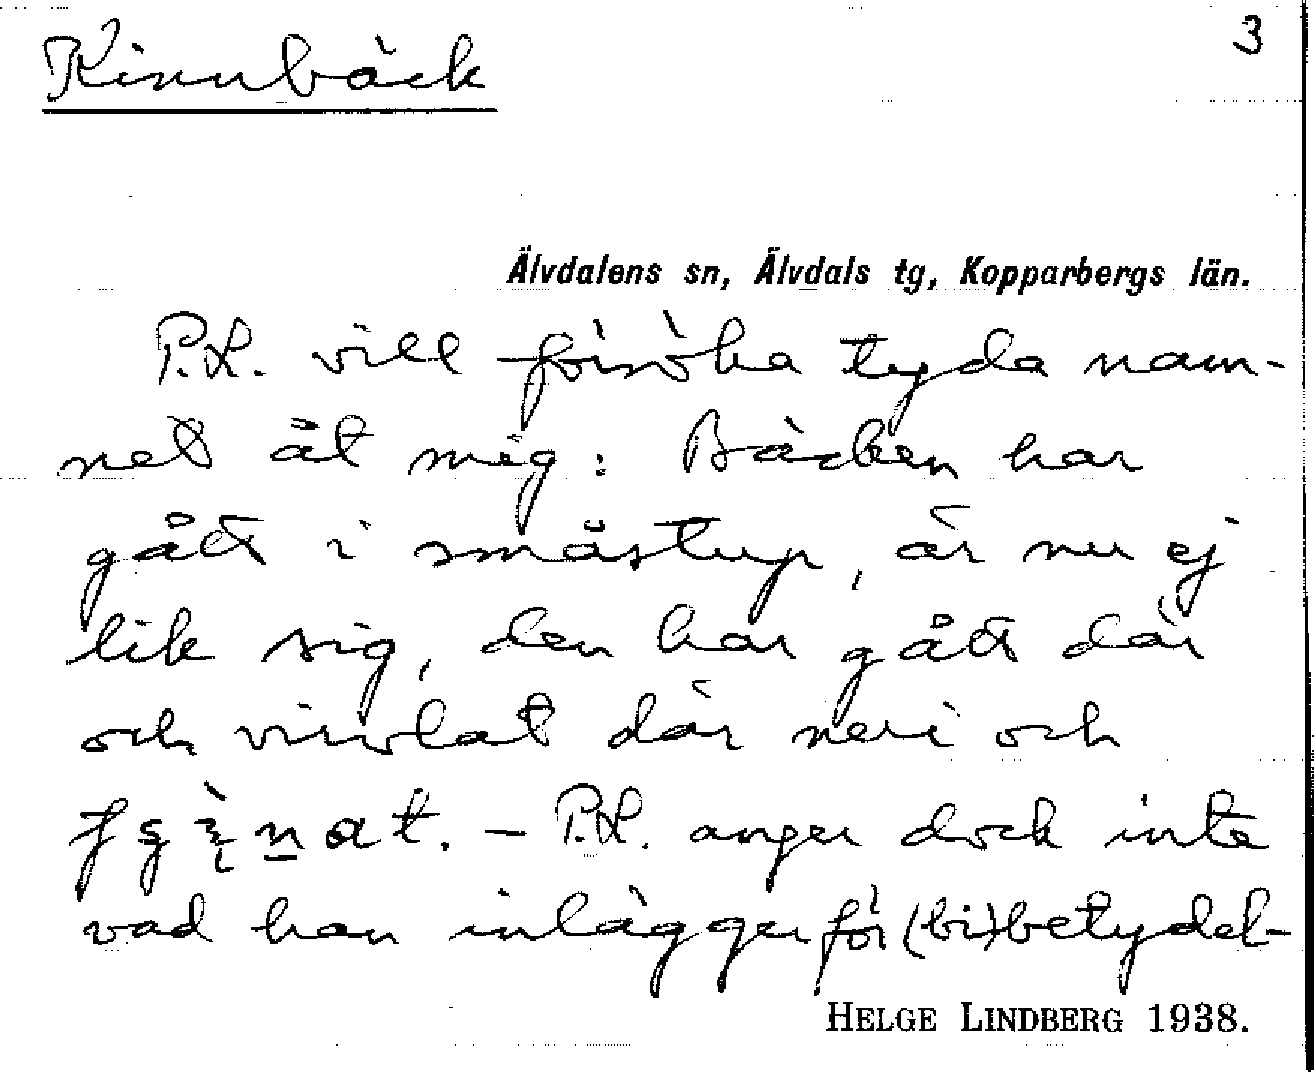 Kinnbäck
3
Älvdalens sn, Älvdals tg, Kopparbergs län.
P.L. vill försöka tyda nam-
net åt mig: Bäcken har
gått i småstup, är nu ej
lik sig, den har gått där
och virvlat där neri och
– P.L. anger dock inte
vad han inlägger för (bi)betydel-
HELGE LINDBERG 1938.